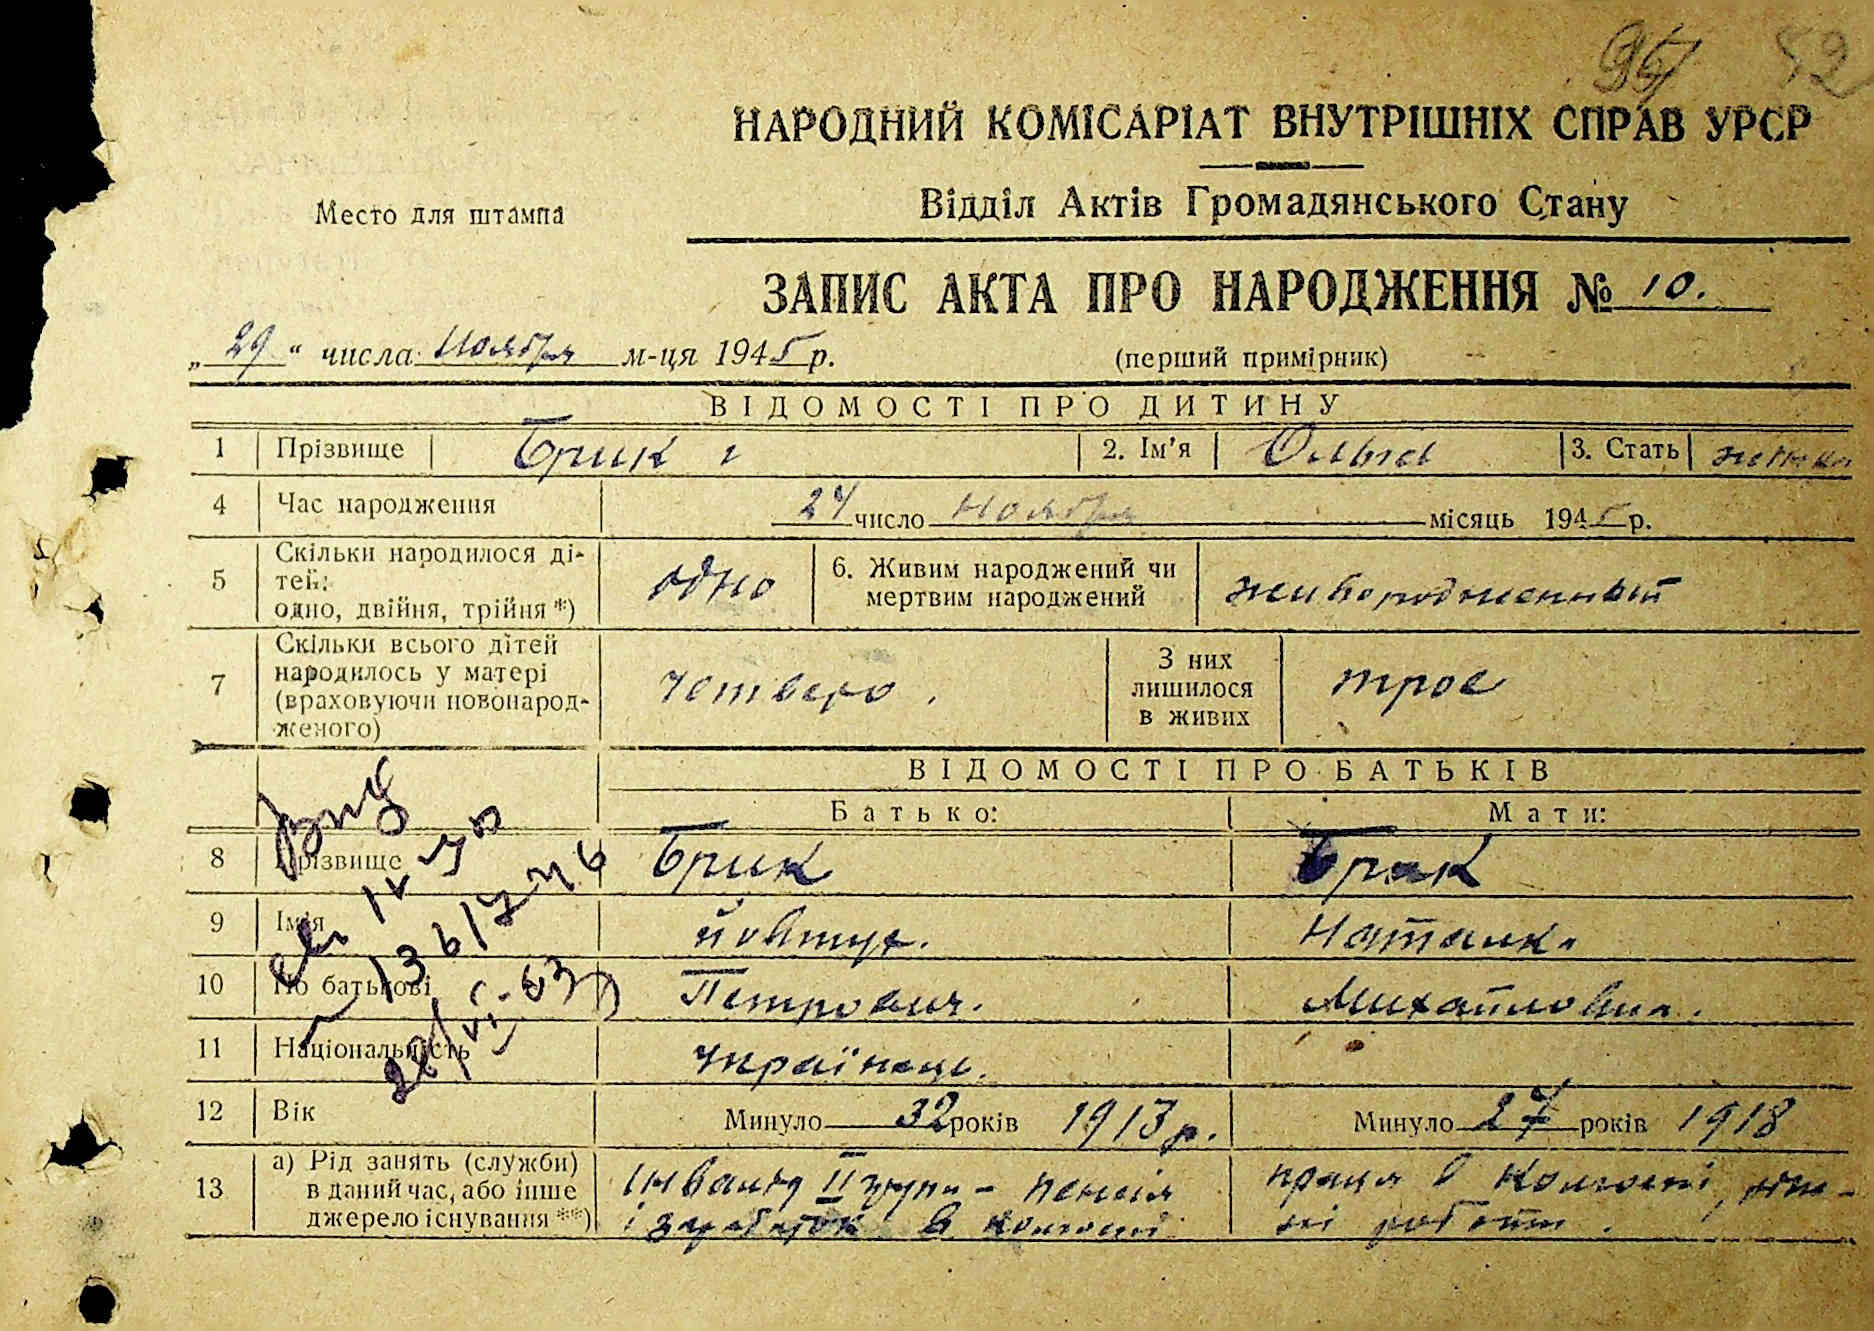 52
НАРОДНИЙ КОМІСАРІАТ ВНУТРІШНІХ СПРАВ УРСР
Место для штампа
Відділ Актів Громадянського Стану
ЗАПИС АКТА ПРО НАРОДЖЕННЯ № 10.
„29“ числа Ноября м-ця 1945 р. (перший примірник)
ВІДОМОСТІ ПРО ДИТИНУ
1 Прізвище Брик 2. Ім'я Ольга 3. Стать
4 Час народження 24 число Ноября місяць 1945 р.
5 Скільки народилося ді-
тей:
одно, двійня, трійня*) одно 6. Живим народжений чи
мертвим народжений живорожденный
7 Скільки всього дітей
народилось у матері
(враховуючи новонарод-
женого) четверо. З них
лишилося
в живих трое
ВІДОМОСТІ ПРО БАТЬКІВ
Батько: Мати:
8 Прізвище Брик Брик
9 Ім'я Наталка
10 По батькові Петрович. Михайловна.
11 Національність українец.
12 Вік Минуло 32 років 1913 р. Минуло 27 років 1918
13 а) Рід занять (служби)
в даний час, або інше
джерело існування**) Інвалід II групи - пенсія
і заработок в колгоспі праця в колгоспі,
роботи.